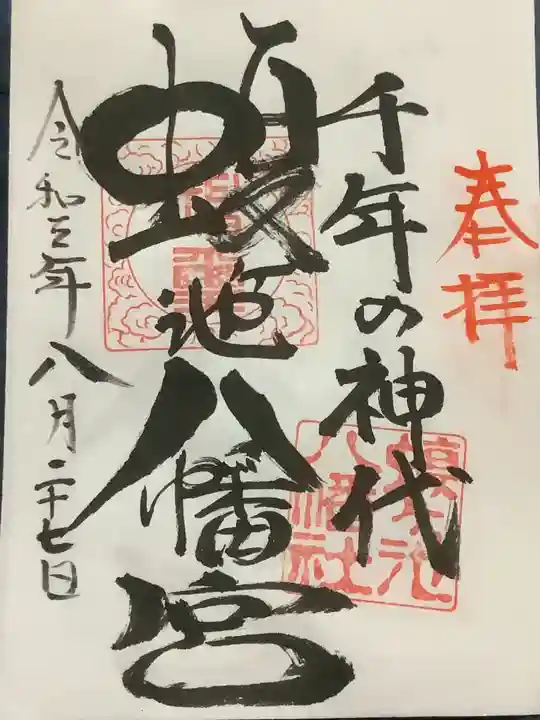 奉拝
千年の神代
池八幡宮
令和三年八月二十七日
池
八幡社